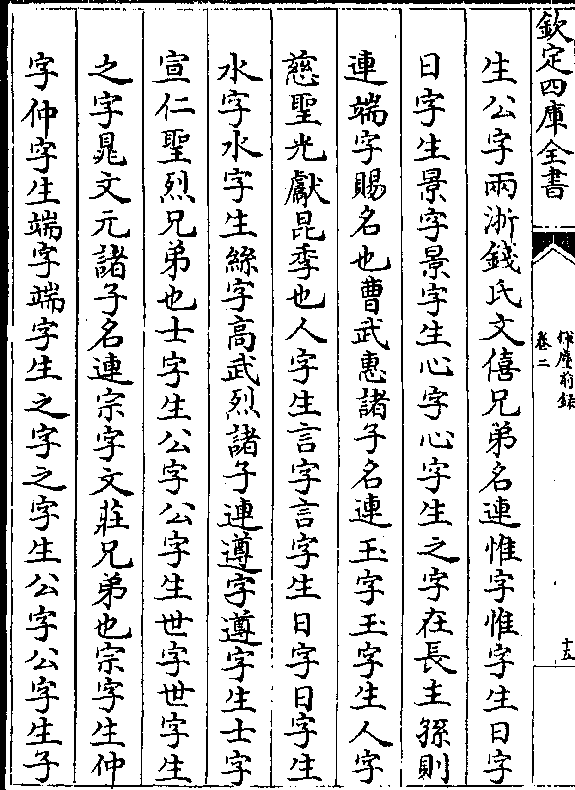 欽定四庫全書
揮麈前錄
卷二
十五
生公字兩浙錢氏文僖兄弟名連惟字惟字生日字
日字生景字景字生心字心字生之字在長主孫則
連端字賜名也曹武惠諸子名連玉字玉字生人字
慈聖光獻昆季也人字生言字言字生日字日字生
水字水字生絲字高武烈諸子連遵字遵字生士字
宣仁聖烈兄弟也士字生公字公字生世字世字生
之字晁文元諸子名連宗字文莊兄弟也宗字生仲
字仲字生端字端字生之字之字生公字公字生子